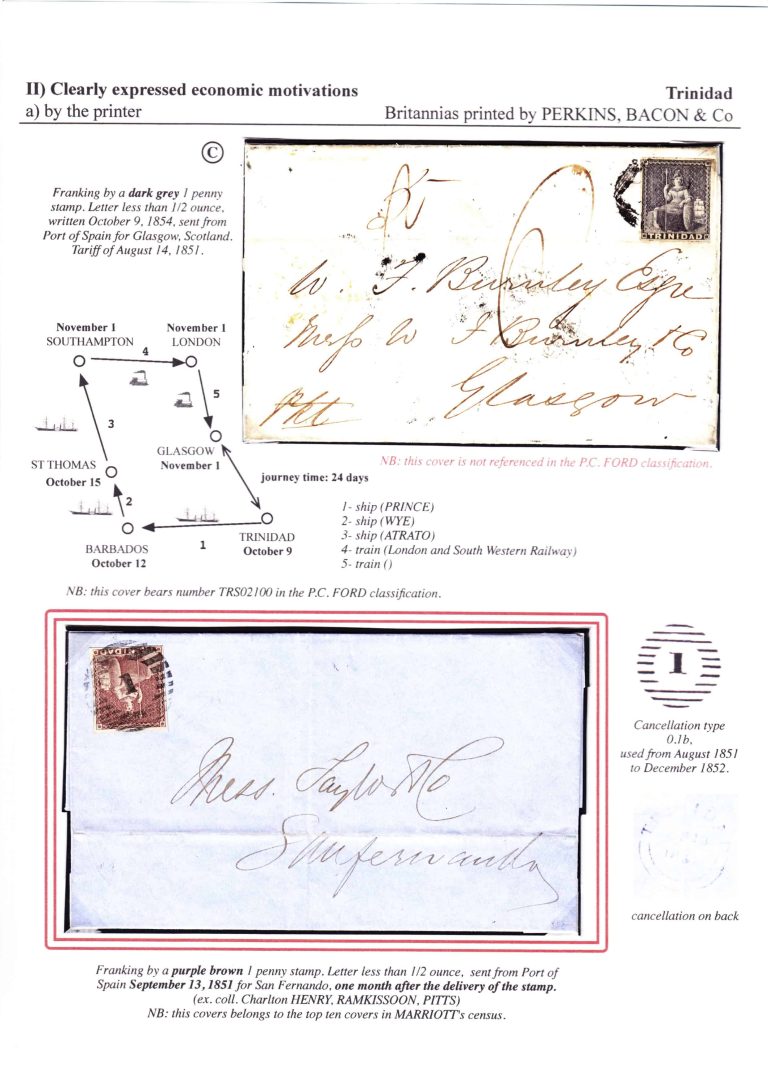 II) Clearly expressed economic motivations
Trinidad
a) by the printer
Britannias printed by PERKINS, BACON & Co
C
Franking by a dark grey 1 penny
stamp. Letter less than 1/2 ounce,
written October 9, 1854, sent from
Port of Spain for Glasgow, Scotland.
Tariff of August 14, 1851.
TRINIDAD
W. F. Burnley Esqre
Messs W F Burnley & Co
Glasgow
Pkt
NB: this cover is not referenced in the P.C. FORD classification.
November 1
SOUTHAMPTON
November 1
LONDON
4
5
3
GLASGOW
November 1
ST THOMAS
October 15
journey time: 24 days
2
1
BARBADOS
October 12
TRINIDAD
October 9
1- ship (PRINCE)
2- ship (WYE)
3- ship (ATRATO)
4- train (London and South Western Railway)
5- train ()
NB: this cover bears number TRS02100 in the P.C. FORD classification.
Mess. Taylor & Co
Sanfernando
1
Cancellation type
0.1b,
used from August 1851
to December 1852.
cancellation on back
Franking by a purple brown 1 penny stamp. Letter less than 1/2 ounce, sent from Port of
Spain September 13, 1851 for San Fernando, one month after the delivery of the stamp.
(ex. coll. Charlton HENRY, RAMKISSOON, PITTS)
NB: this covers belongs to the top ten covers in MARRIOTT's census.